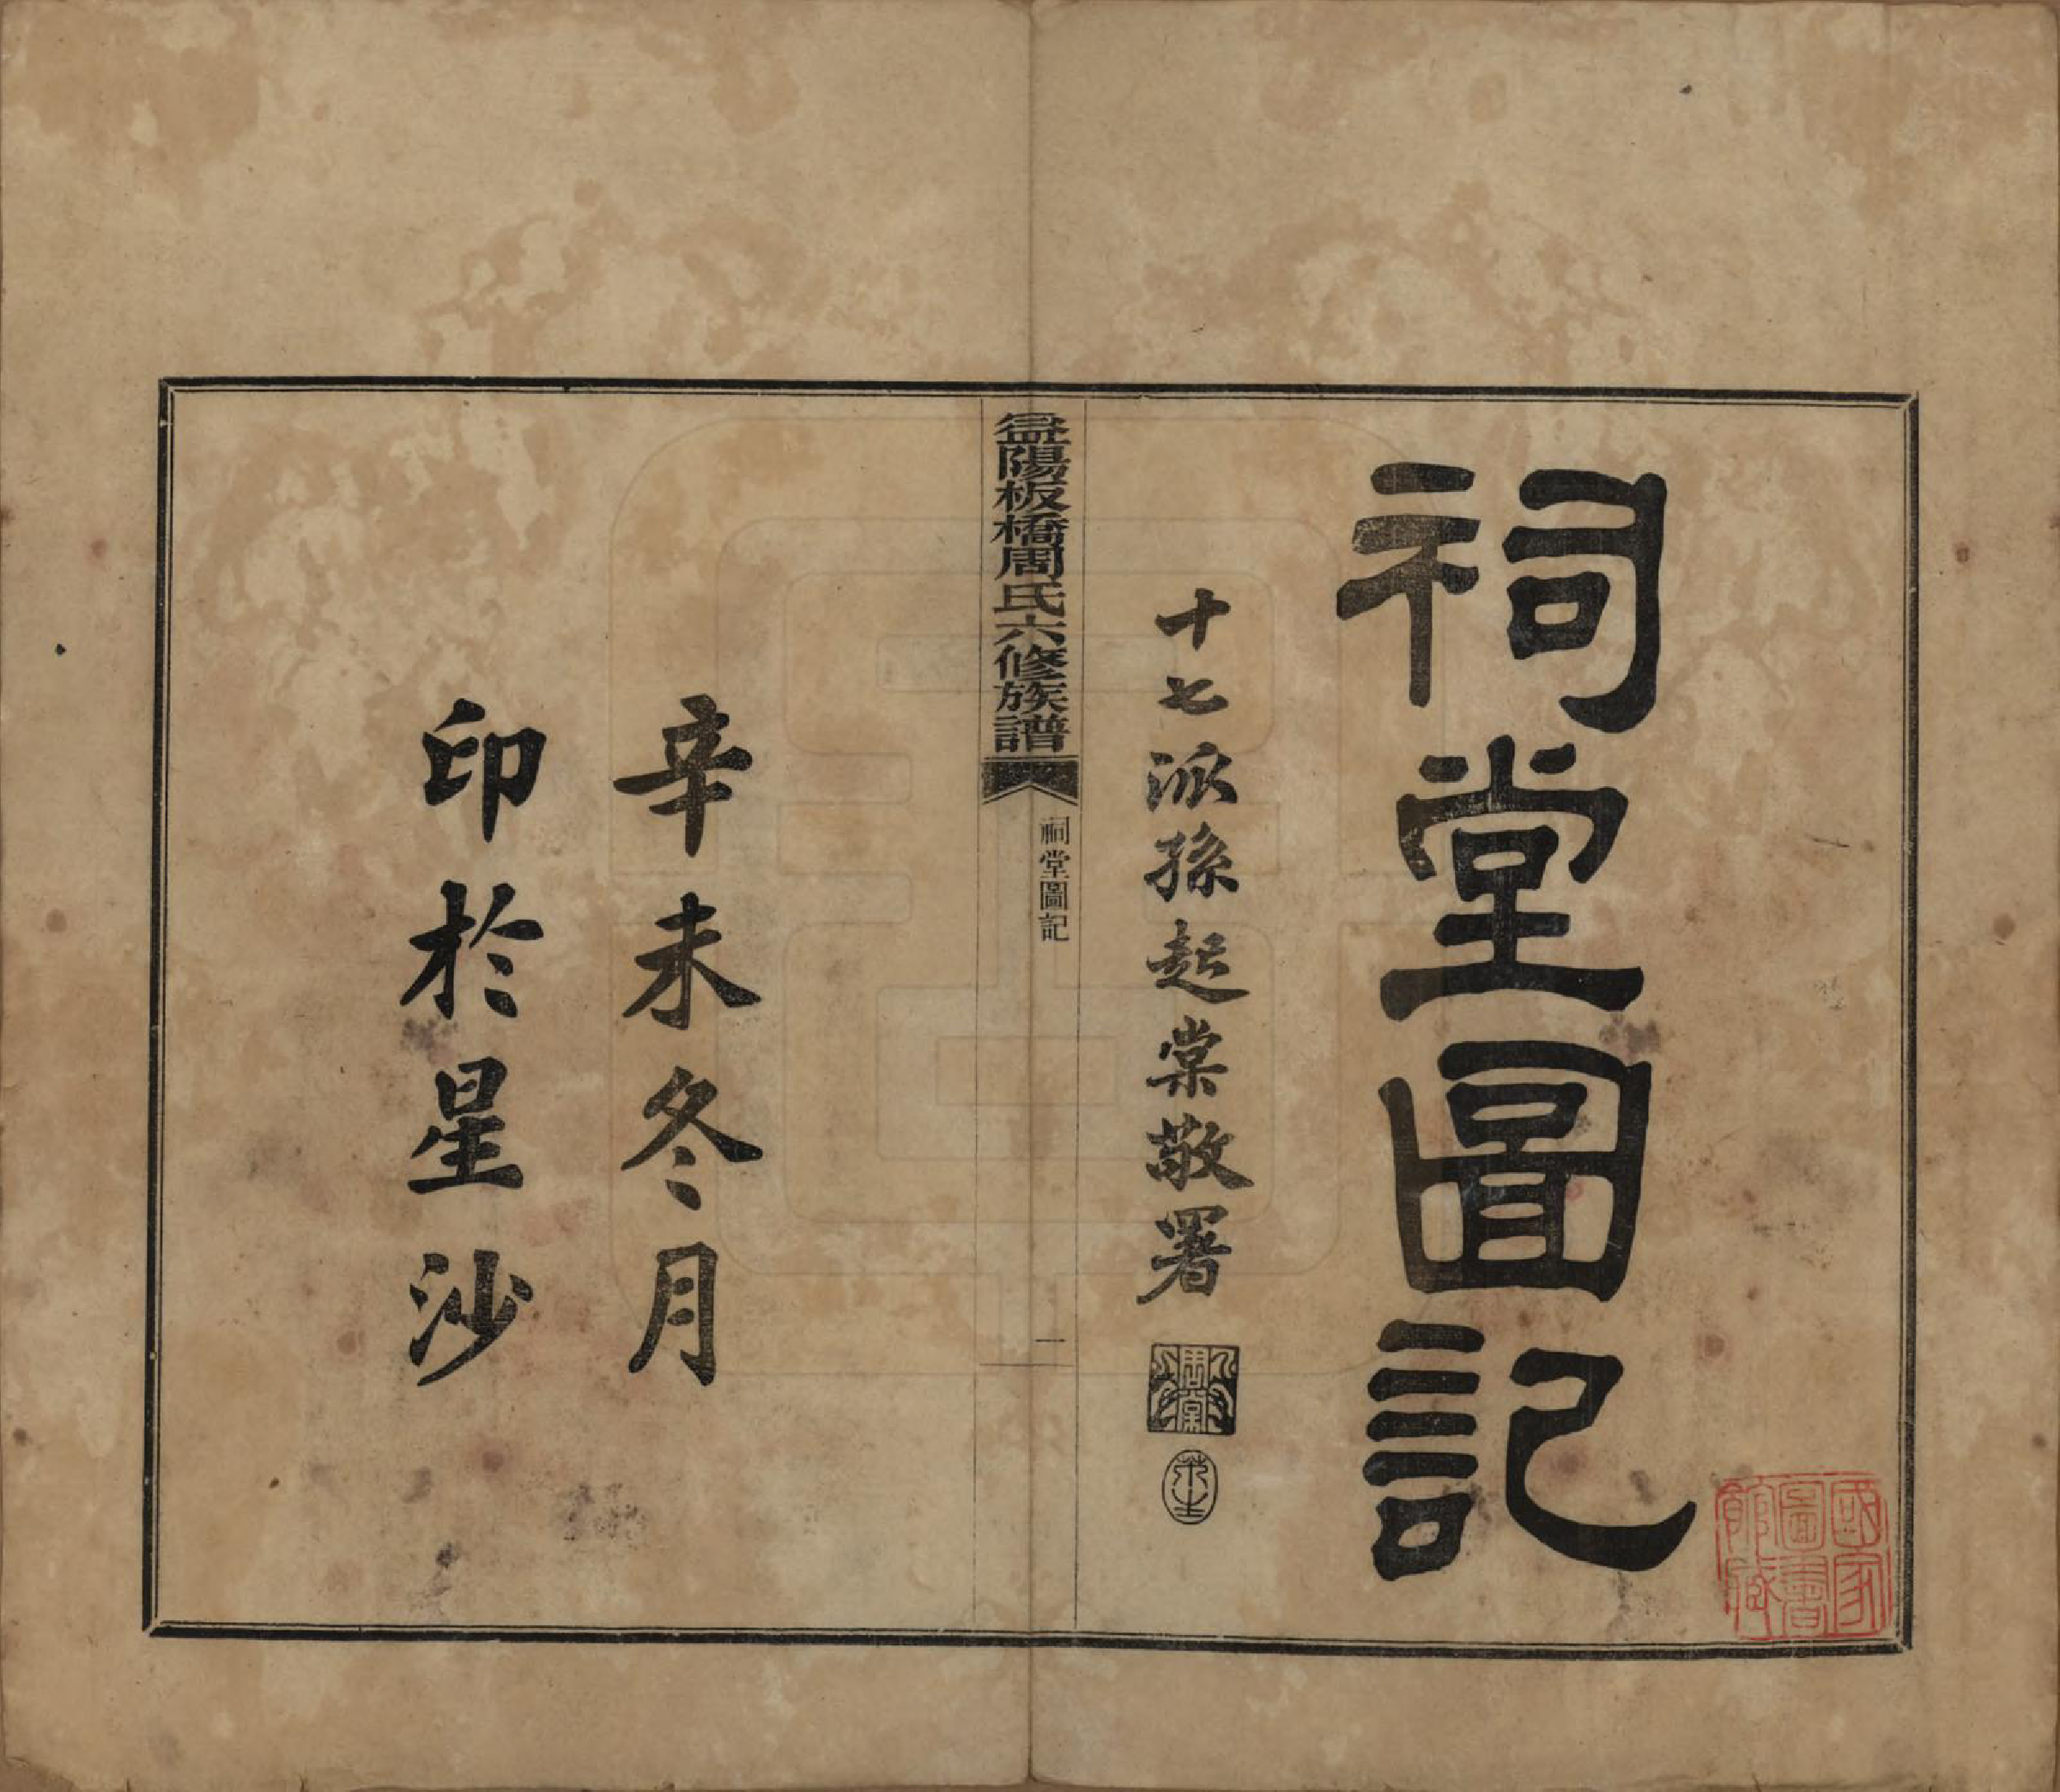 祠堂圖記
十七派孫起棠敬署
益陽板橋周氏六修族譜
祠堂圖記
一
辛未冬月
印於星沙
國家圖書館藏